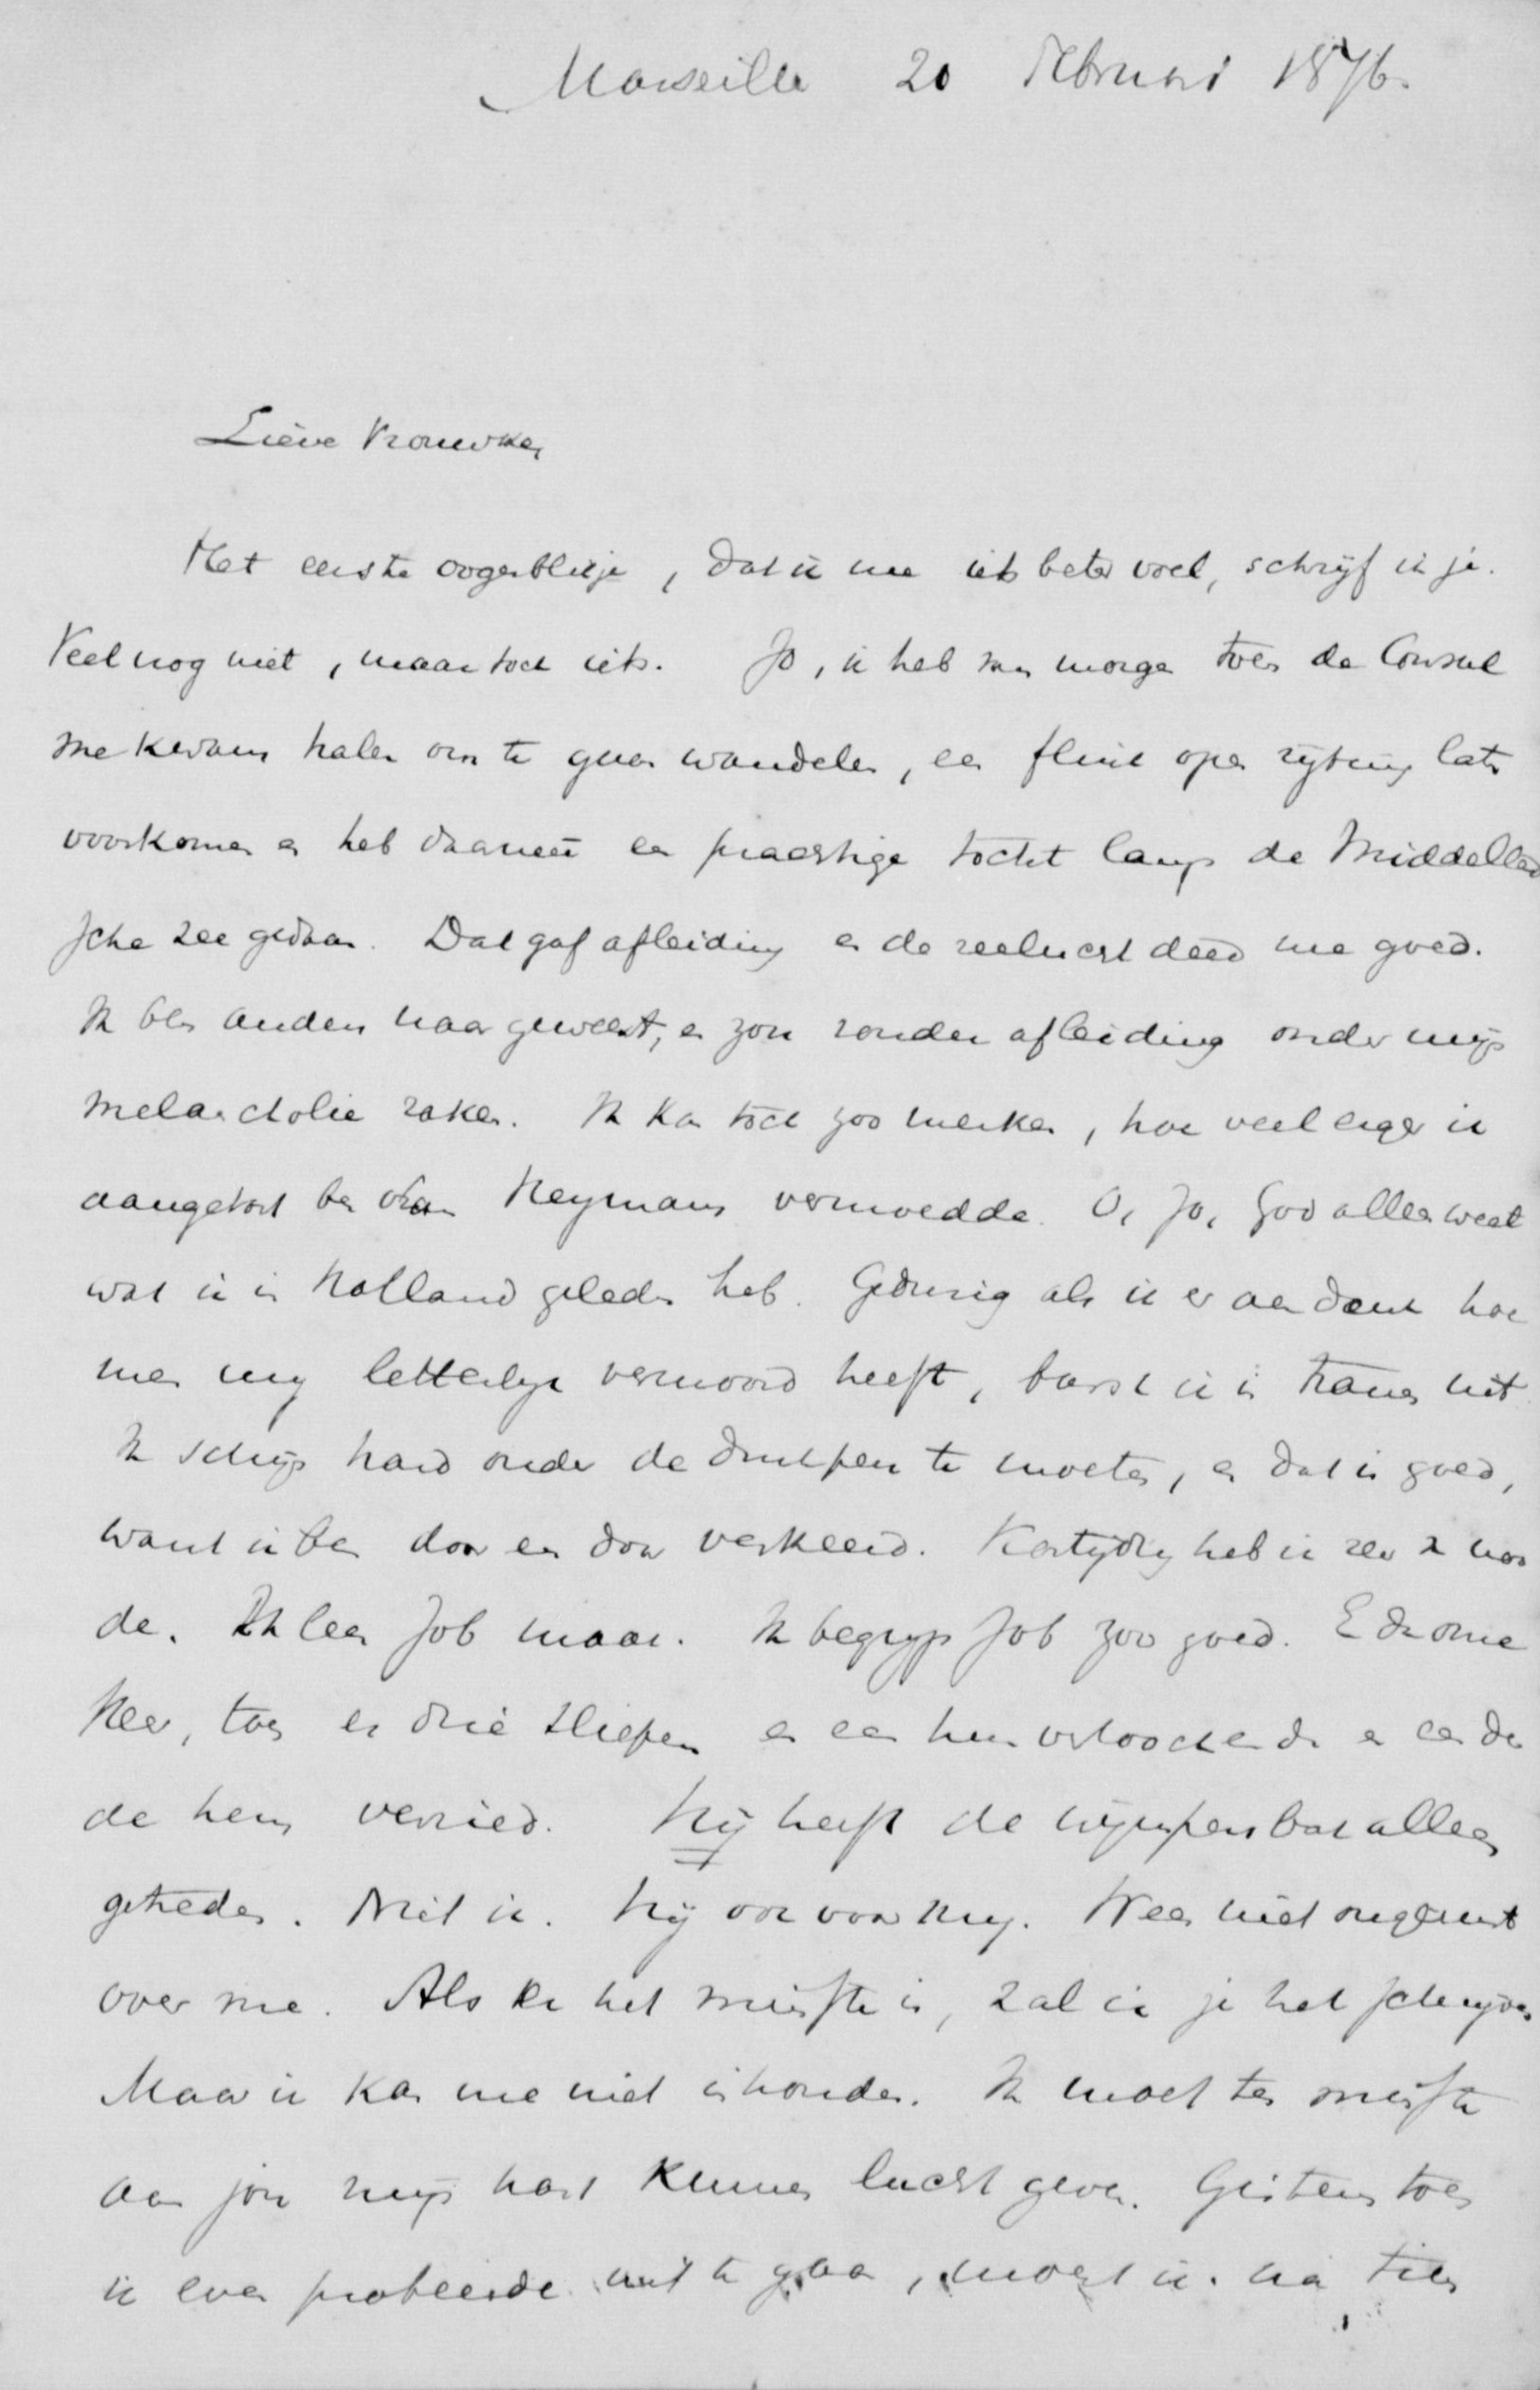 Marseille 20 Februari 1876.
Lieve Vrouwke,
Het eerste oogenblikje, dat ik me iets beter voel, schrijf ik je.
Veel nog niet, maar toch iets. Jo, ik heb van morgen toen de Consul
me kwam halen om te gaan wandelen, een flink open rijtuig laten
voorkomen en heb daarmeê een prachtige tocht langs de Middelland
sche zee gedaan. Dat gaf afleiding en de zeelucht deed me goed.
Ik ben anders naar geweest, en zou zonder afleiding onder mijn
melancholie raken. Ik kan toch zoo merken, hoe veel erger ik
aangetast ben dan Heymans vermoedde. O, Jo, God alleen weet
wat ik in Holland geleden heb. Gedurig als ik er aan denk hoe
men my letterlyk vermoord heeft, barst ik in tranen uit.
Ik schijn hard onder de te moeten, en dat is goed,
want ik ben door en door verkeerd. heb ik
de. Ik lees Job maar. Ik begryp Job zoo goed. En onze
Heer, toen er drie sliepen en een hem verloochende en een der
de hem verried. Hij heeft de wijnpersbak alleen
getreden. Niet ik. Hij ook voor my. Wees niet ongerust
over me. Als er het minste is, zal ik je het schryven
Maar ik kan me niet inhouden. Ik moet ten minste
aan jou mijn hart kunnen lucht geven. Gisteren toen
ik even probeerde uit te gaan, moest ik na tien